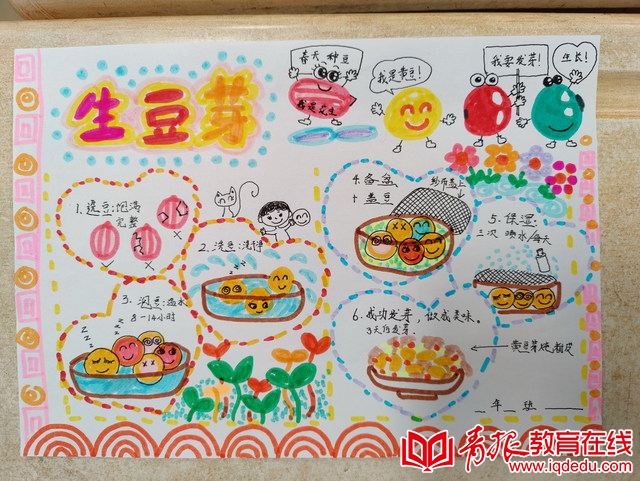 生豆芽
春天种豆
我是花生
我是黄豆!
我要发芽!
生长!
1. 选豆:饱满
完整
2. 洗豆:洗净
3. 泡豆:温水
8-14小时
zzz
zzz
zzz
4. 备盆
+ 盖豆
纱布盖上
5. 保湿:
三次 喷水/每天
6. 成功发芽,做成美味。
3天的发芽。
黄豆芽
年 班
青报教育在线
www.iqdedu.com